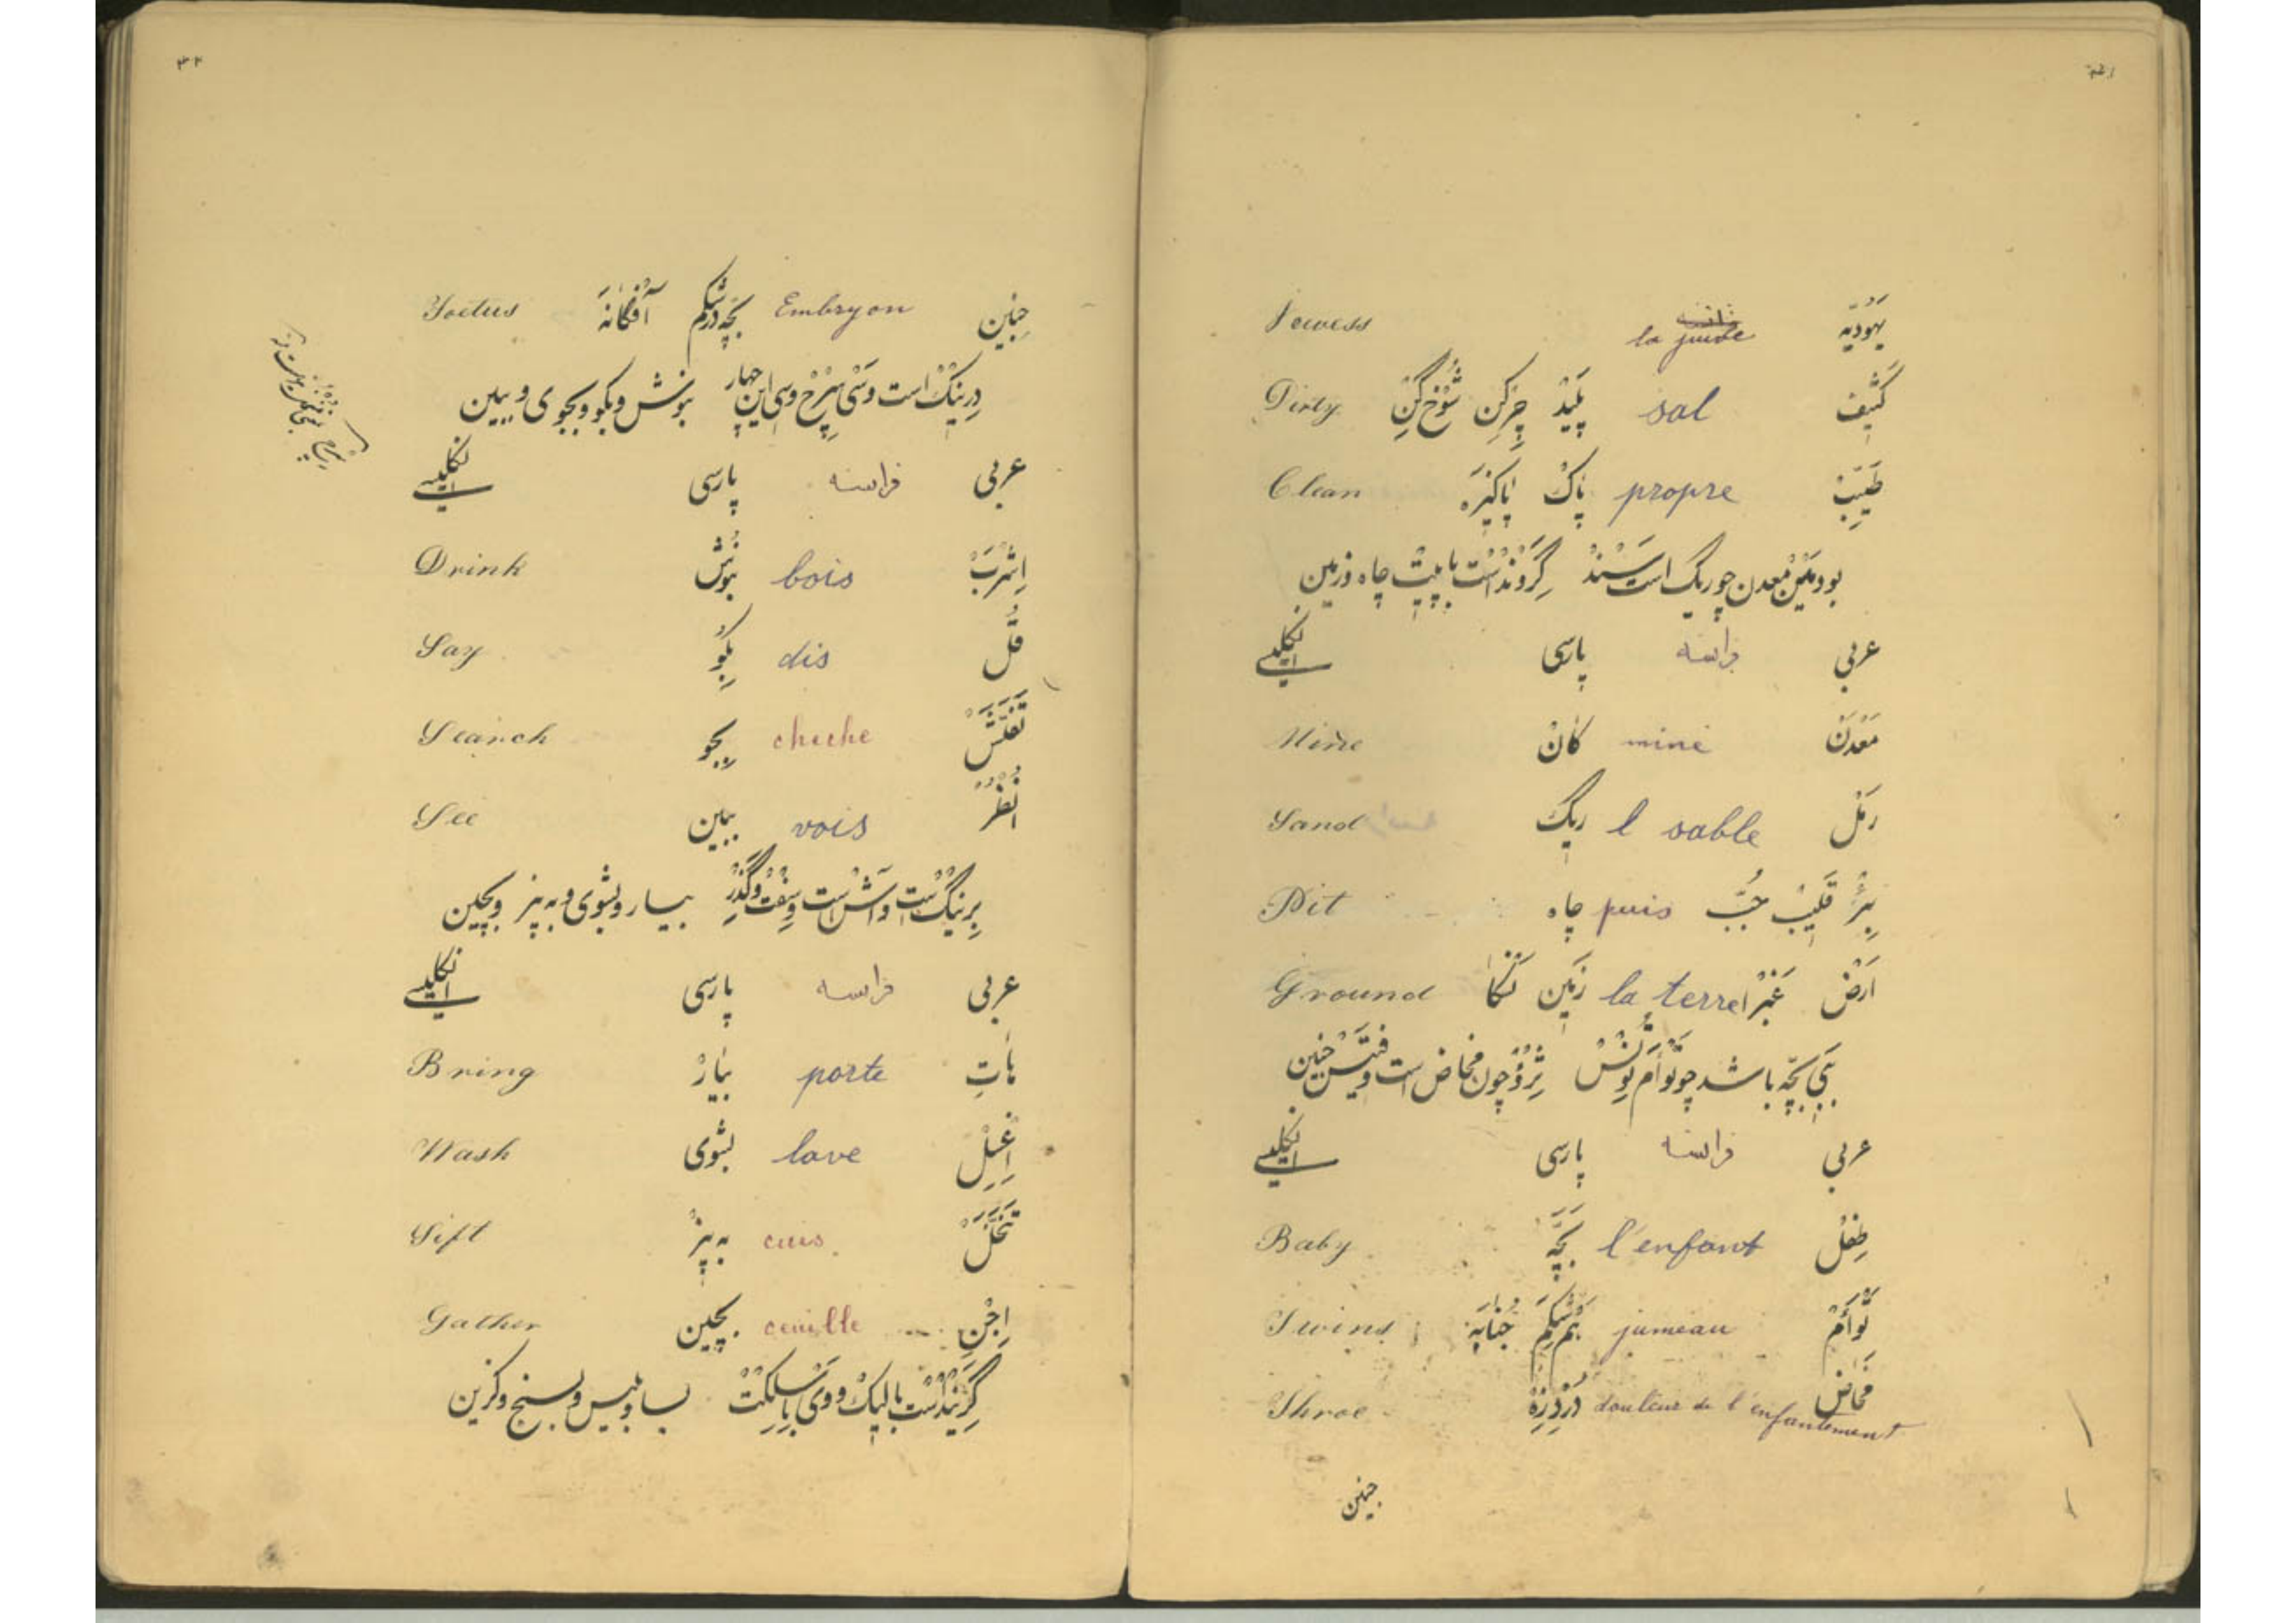 ۳۱
یهودیّه la juive Jewess
كَثیف sal پَلیدْ چِرکِن شُوْخ‌گِنْ Dirty
طَیِّبْ propre پاکْ پاکیزَه Clean
بود مَیْنْ معدن چو ریگ است سَنْدْ گِرَوْنْدْ است با پیتْ چاه و زمین
عربی فرانسه پارسی انگلیسے
مَعْدَنْ mine کانْ Mine
رَمْل l sable ریگ Sand
بِئْرْ قَلیبْ جُبّْ puis چاه Pit
اَرْضْ غَبْرا la terre زَمین Ground
بِبَیْ بچّه باشد چو تَوْأَم تْوِنْسْ ثْرُوْ چون مخاض است و فیتَسْ جنین
عربی فرانسه پارسی انگلیسے
طِفْل l'enfant بَچَّه Baby
تَوْأَمْ jumeau هَمْ‌شِکَمْ جُنابَه Twins
مَخاض douleur de l'enfantement دَرْدِ زِهْ Throe
جنین
۳۲
جَنین Embryon بَچّه در شِکَم آفگانَه Foetus
دِرینْکْ است و سَیْ سِرْچْ و سی این چهار بنوش و بگو و بجوی و ببین
عربی فرانسه پارسی انگلیسے
اِشْرَبْ bois بنُوش Drink
قُلْ dis بگُو Say
تَفَتَّشْ cheche بجو Search
اُنْظُرْ vois ببین See
بِرینْگْ است و واشْ است و سِفْتْ و گَذَرْ بیار و بشوی و به‌پز و بچین
عربی فرانسه پارسی انگلیسے
هاتِ porte بیارْ Bring
اِغْسِلْ lave بشوی Wash
تَنَخَّلْ cuis به‌پزْ Sift
اِجْنِ ceuille بچین Gather
گِرَیْنْدْ است با لیکْ و وَیْ با سِلِکْتْ بسا و بلیس و بسنج و گزین